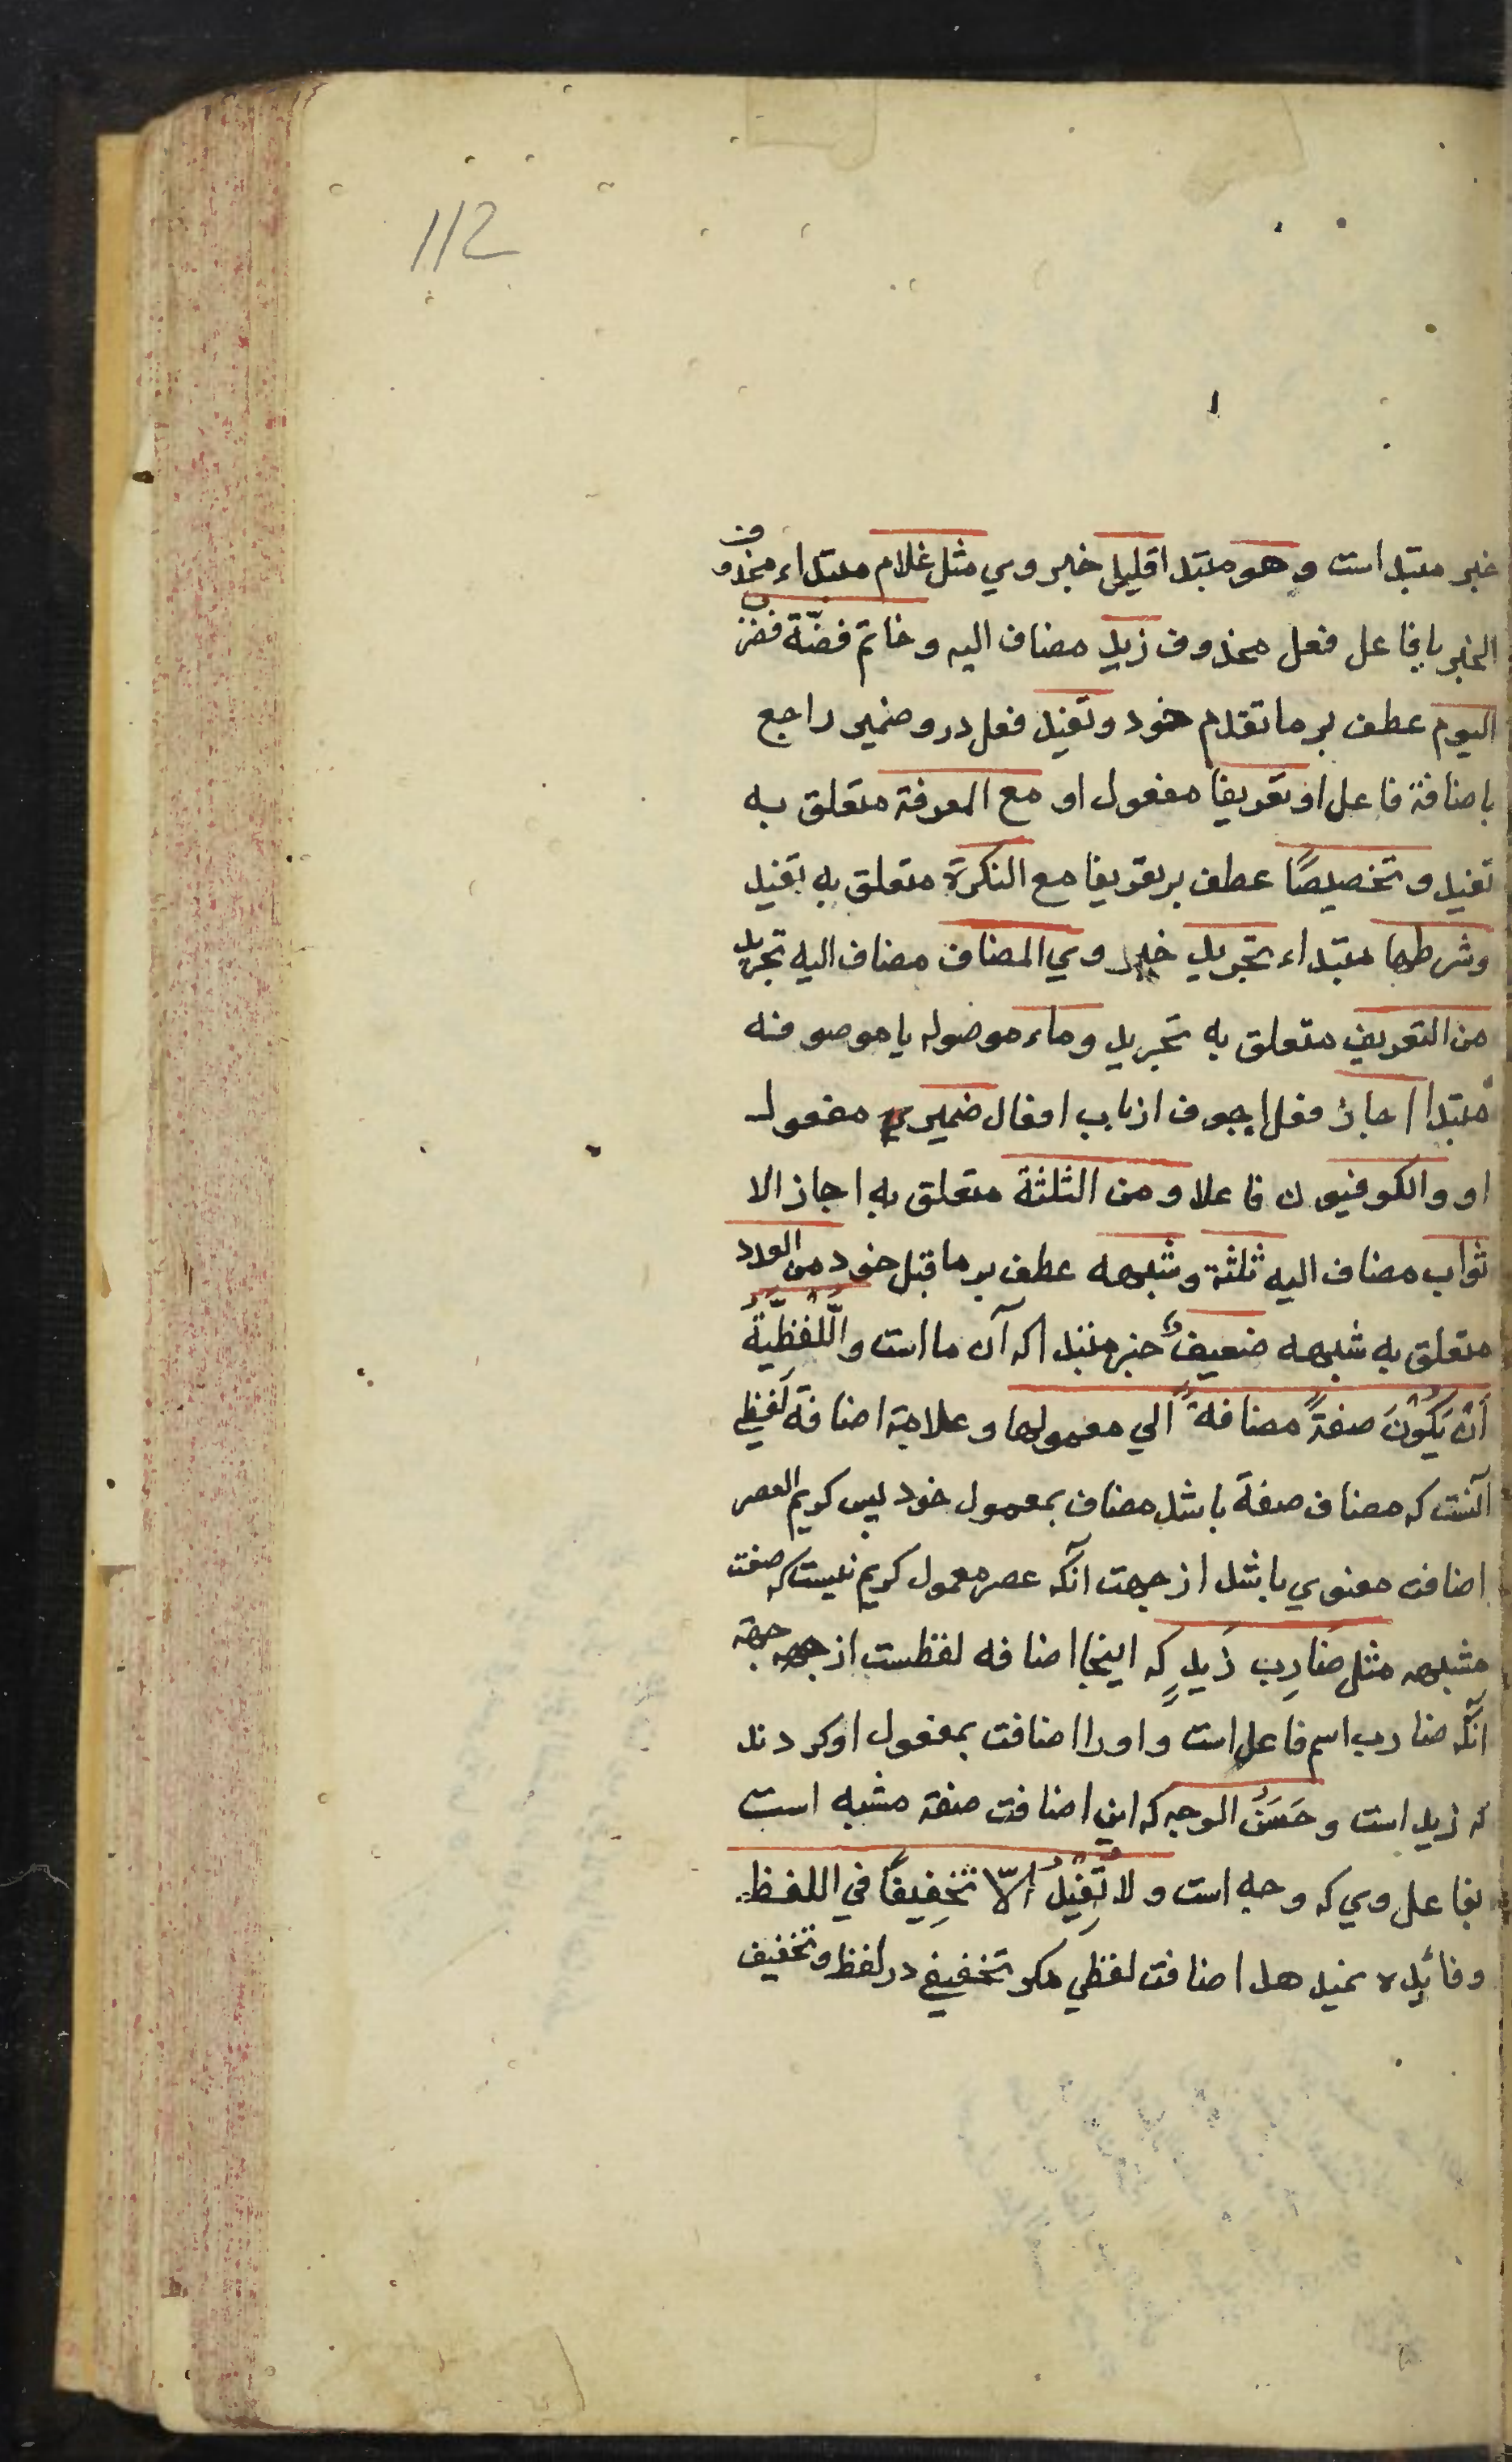 112
خبر مبتداست و هو مبتدا قلیل خبر وي مثل غلام مبتداء محذوف
الخبر یا فاعل فعل محذوف زید مضاف الیه و خاتم فضّة ضرب
الیوم عطف بر ما تقدم خود و تفید فعل درو ضمیر راجع
باضافة فاعل او تعریفا مفعول او مع المعرفة متعلق به
تفید و تخصیصًا عطف بر تعریفا مع النکرة متعلق به تفید
وشرطها مبتداء تجرید خبر وي المضاف مضاف الیه تجرید
من التعریف متعلق به تجرید وماء موصوله یا موصوفه
مبتدا اجاز فعل اجوف از باب افعال ضمیر مفعول
او والکوفیون فاعل او من الثلثة متعلق به اجاز الا
ثواب مضاف الیه ثلثة وشبهه عطف بر ما قبل خود من العدد
متعلق به شبهه ضعیفٌ خبر مبتدا که آن ما است واللّفظیّةُ
اَنْ یَکُوْنَ صفةً مضافةً الي معمولها و علامة اضافة لَفْظِي
آنست که مضاف صفة باشد مضاف بمعمول خود پس کریم العصر
اضافت معنوي باشد از جهت آنکه عصر معمول کریم نیست که صفت
مشبهه مثل ضَارِب زَیدٍ که اینجا اضافه لفظیست از جهة
آنکه ضارب اسم فاعل است و اورا اضافت بمفعول او کردند
که زید است و حَسَنُ الوجه که این اضافت صفة مشبه است
بفاعل وي که وجه است و لا تُفِیْدُ اِلّا تَخْفِیفًا في اللفظ
و فائده نمیدهد اضافت لفظي مکر تخفیفی در لفظ و تخفیف